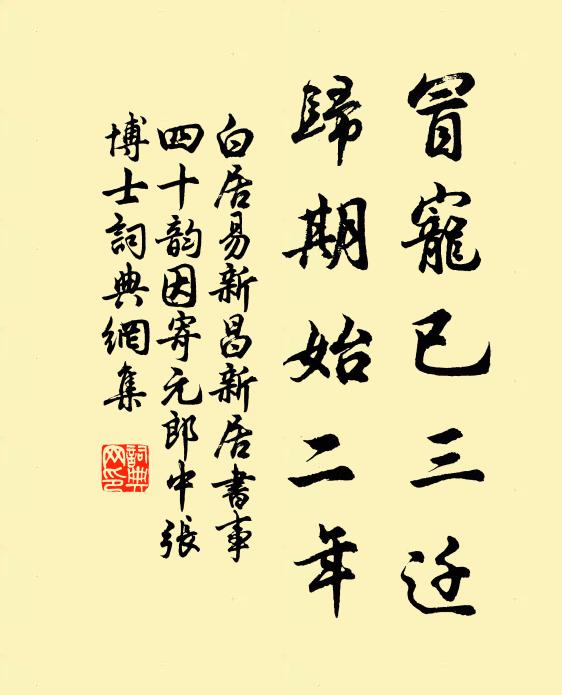 冒寵已三迁
歸期始二年
白居易新昌新居書事
四十韵因寄元郎中張
博士詞典網集
詞典网印